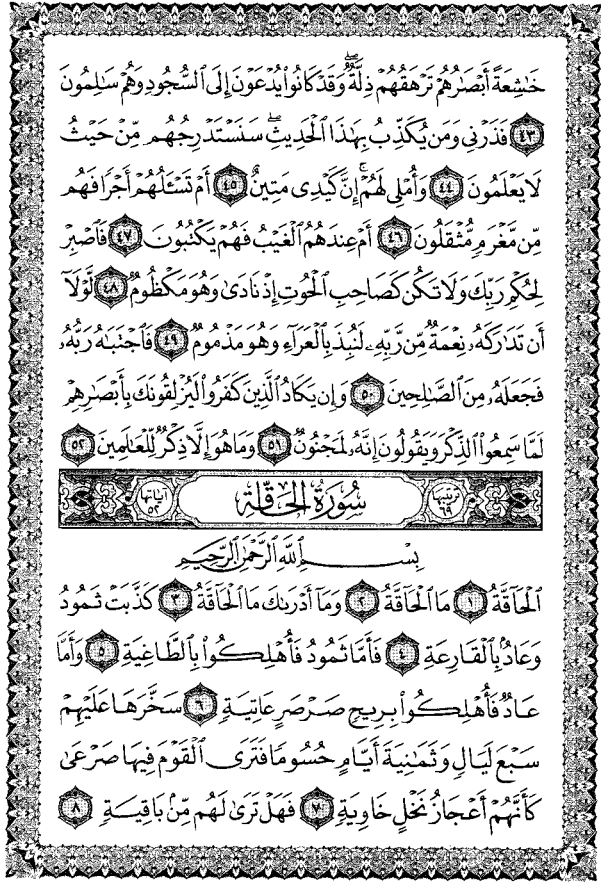 خَٰشِعَةً أَبْصَٰرُهُمْ تَرْهَقُهُمْ ذِلَّةٌ ۖ وَقَدْ كَانُوا۟ يُدْعَوْنَ إِلَى ٱلسُّجُودِ وَهُمْ سَٰلِمُونَ
٤٣ فَذَرْنِى وَمَن يُكَذِّبُ بِهَٰذَا ٱلْحَدِيثِ ۖ سَنَسْتَدْرِجُهُم مِّنْ حَيْثُ
لَا يَعْلَمُونَ ٤٤ وَأُمْلِى لَهُمْ ۚ إِنَّ كَيْدِى مَتِينٌ ٤٥ أَمْ تَسْـَٔلُهُمْ أَجْرًا فَهُم
مِّن مَّغْرَمٍ مُّثْقَلُونَ ٤٦ أَمْ عِندَهُمُ ٱلْغَيْبُ فَهُمْ يَكْتُبُونَ ٤٧ فَٱصْبِرْ
لِحُكْمِ رَبِّكَ وَلَا تَكُن كَصَاحِبِ ٱلْحُوتِ إِذْ نَادَىٰ وَهُوَ مَكْظُومٌ ٤٨ لَّوْلَآ
أَن تَدَٰرَكَهُۥ نِعْمَةٌ مِّن رَّبِّهِۦ لَنُبِذَ بِٱلْعَرَآءِ وَهُوَ مَذْمُومٌ ٤٩ فَٱجْتَبَٰهُ رَبُّهُۥ
فَجَعَلَهُۥ مِنَ ٱلصَّٰلِحِينَ ٥٠ وَإِن يَكَادُ ٱلَّذِينَ كَفَرُوا۟ لَيُزْلِقُونَكَ بِأَبْصَٰرِهِمْ
لَمَّا سَمِعُوا۟ ٱلذِّكْرَ وَيَقُولُونَ إِنَّهُۥ لَمَجْنُونٌ ٥١ وَمَا هُوَ إِلَّا ذِكْرٌ لِّلْعَٰلَمِينَ ٥٢
ترتيبها ٦٩ سُورَةُ الحَاقَّة آياتها ٥٢
بِسْمِ ٱللَّهِ ٱلرَّحْمَٰنِ ٱلرَّحِيمِ
ٱلْحَآقَّةُ ١ مَا ٱلْحَآقَّةُ ٢ وَمَآ أَدْرَىٰكَ مَا ٱلْحَآقَّةُ ٣ كَذَّبَتْ ثَمُودُ
وَعَادٌۢ بِٱلْقَارِعَةِ ٤ فَأَمَّا ثَمُودُ فَأُهْلِكُوا۟ بِٱلطَّاغِيَةِ ٥ وَأَمَّا
عَادٌ فَأُهْلِكُوا۟ بِرِيحٍ صَرْصَرٍ عَاتِيَةٍ ٦ سَخَّرَهَا عَلَيْهِمْ
سَبْعَ لَيَالٍ وَثَمَٰنِيَةَ أَيَّامٍ حُسُومًا فَتَرَى ٱلْقَوْمَ فِيهَا صَرْعَىٰ
كَأَنَّهُمْ أَعْجَازُ نَخْلٍ خَاوِيَةٍ ٧ فَهَلْ تَرَىٰ لَهُم مِّنۢ بَاقِيَةٍ ٨